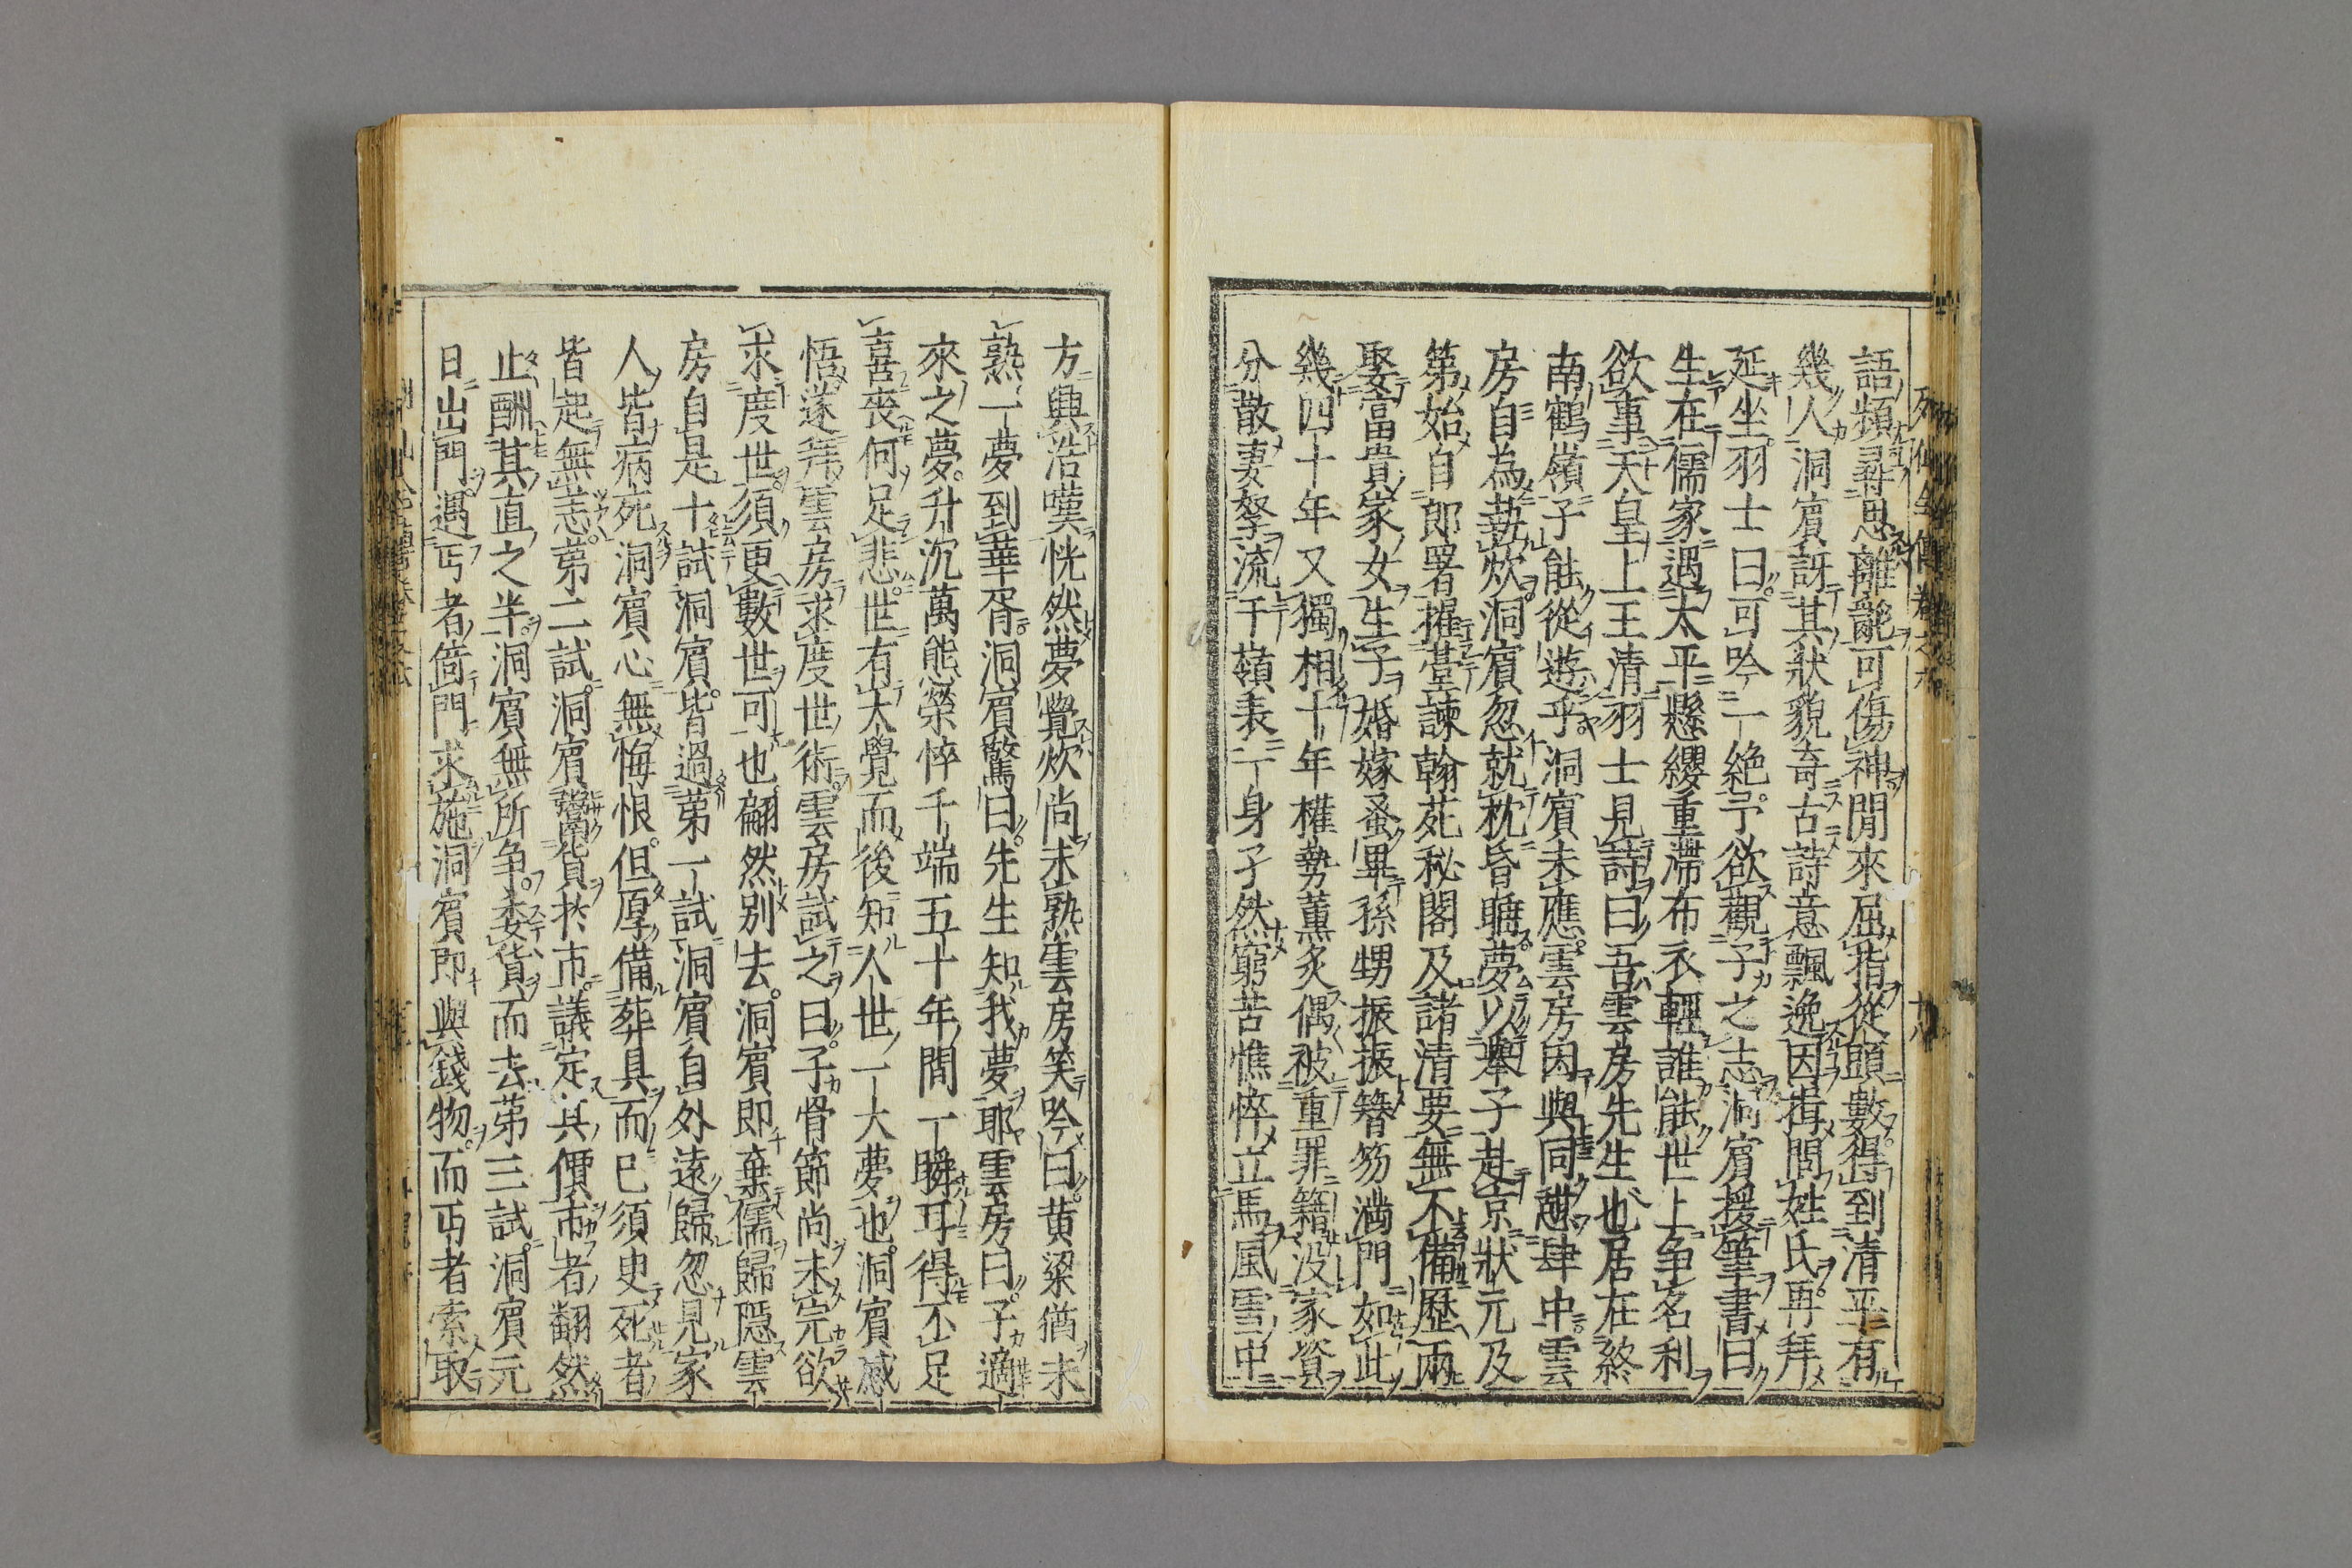 語頻尋思離亂可傷神閒來屈指從頭數得到清平有
幾人洞賓訝其狀貌奇古詩意飄逸因揖問姓氏再拜
延坐羽士曰可吟一絶予欲觀子之志洞賓援筆書曰
生在儒家遇太平懸纓重滯布衣輕誰能世上争名利
欲事天皇上王清羽士見詩曰吾雲房先生也居在終
南鶴嶺子能從遊乎洞賓未應雲房因與同憇肆中雲
房自為執炊洞賓忽就枕昏睡夢以舉子赴京狀元及
第始自郎署擢臺諫翰苑秘閣及諸清要無不備歷兩
娶富貴家女生子婚嫁蚤畢孫甥振振簪笏滿門如此
幾四十年又獨相十年權勢薰炙偶被重罪籍没家資
分散妻孥流于嶺表一身孑然窮苦憔悴立馬風雪中
方興浩嘆恍然夢覺炊尚未熟雲房笑吟曰黄粱猶未
熟一夢到華胥洞賓驚曰先生知我夢耶雲房曰子適
來之夢升沉萬態榮悴千端五十年間一瞬耳得不足
喜喪何足悲世有大覺而後知人世一大夢也洞賓感
悟遂拜雲房求度世術雲房試之曰子骨節尚未完欲
求度世須更數世可也翩然别去洞賓即棄儒歸隱雲
房自是十試洞賓皆過第一試洞賓自外遠歸忽見家
人皆病死洞賓心無悔恨但厚備葬具而已須臾死者
皆起無恙第二試洞賓鬻貨於市議定其價市者翻然
止酬其直之半洞賓無所争委貨而去第三試洞賓元
日出門遇丐者倚門求施洞賓即與錢物而丐者索取
列仙全傳卷之六
十八